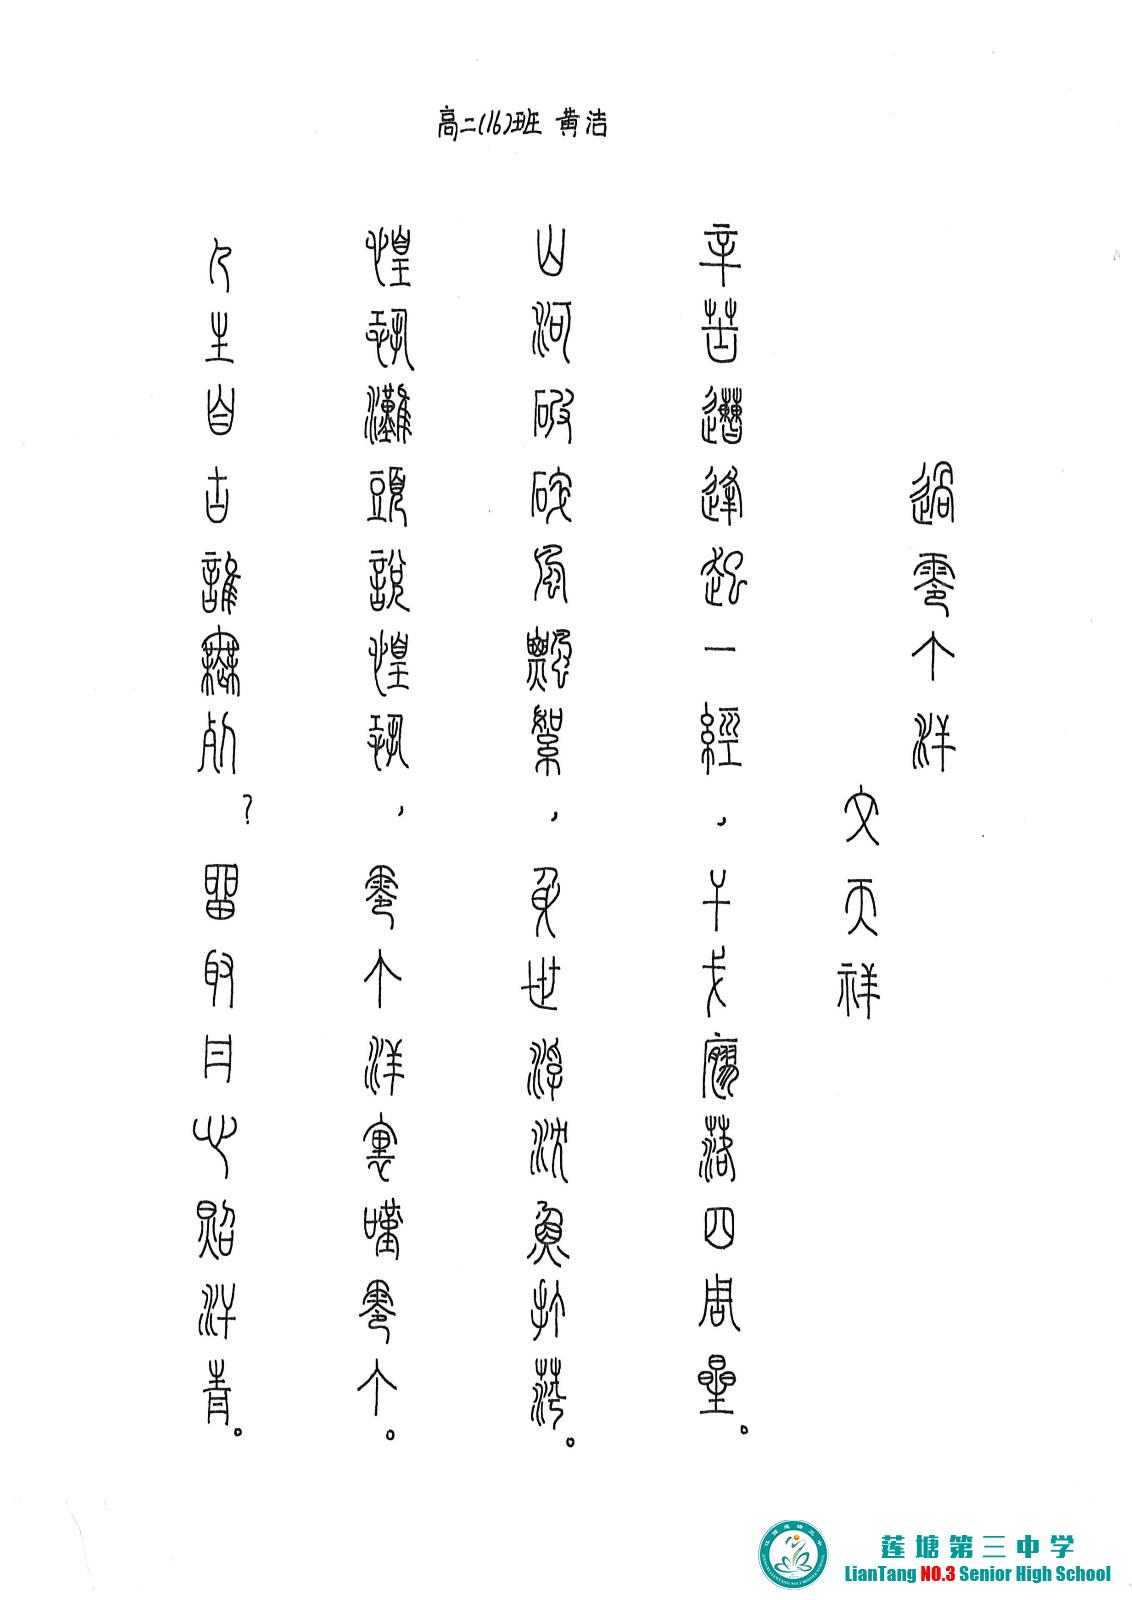 高二(16)班 黄洁
過零丁洋
文天祥
辛苦遭逢起一經，干戈寥落四周星。
山河破碎風飄絮，身世浮沈魚打萍。
惶恐灘頭說惶恐，零丁洋裏嘆零丁。
人生自古誰無死？留取丹心照汗青。
莲塘第三中学
LianTang NO.3 Senior High School